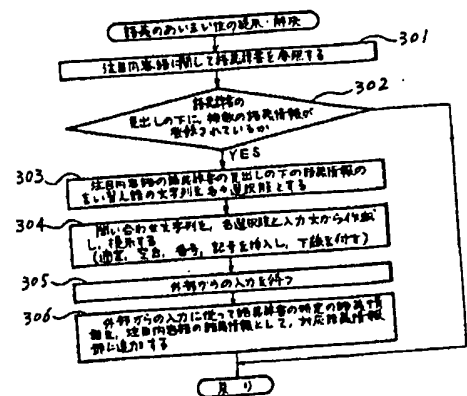 語義のあいまい性の提示・解決
301
注目内容語に関して語義辞書を参照する
302
語義辞書の
見出しの下に、複数の語義情報が
登録されているか
YES
303
注目内容語の語義辞書の見出しの下の語義情報の
言い替え語の文字列を各々選択肢とする
304
問い合わせ文字列を、各選択肢と入力文から作成
し、提示する
(適宜、空白、番号、記号を挿入し、下線を付す)
305
外部からの入力を待つ
306
外部からの入力に従って語義辞書の特定の語義情
報を、注目内容語の語義情報として、対応語義情報
部に追加する
戻り